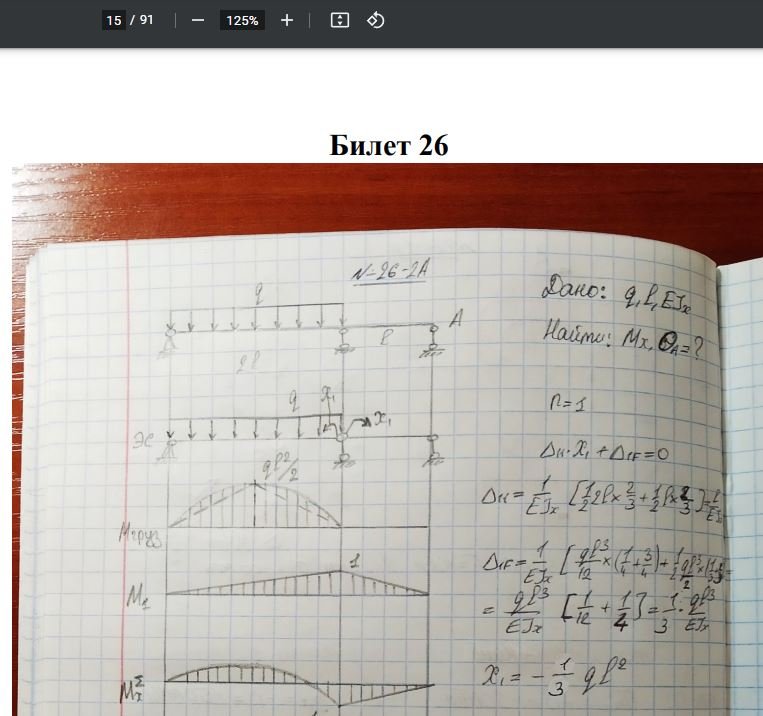 15 / 91
125%
Билет 26
N-26-2А
q
A
2l
l
Дано: q, l, EJx
Найти: Mx, ΘA = ?
q
X1
X1
ЭС
n=1
Δ11·X1 + Δ1F = 0
ql²/2
Mгруз
Δ11 = 1/EJx [1/2 2l × 2/3 + 1/2 l × 2/3] =
1
M1
Δ1F = 1/EJx [ql³/12 × (1/4 + 3/4) +
= ql³/EJx [1/12 + 1/4] = 1/3 · ql³/EJx
MxΣ
X1 = - 1/3 ql²